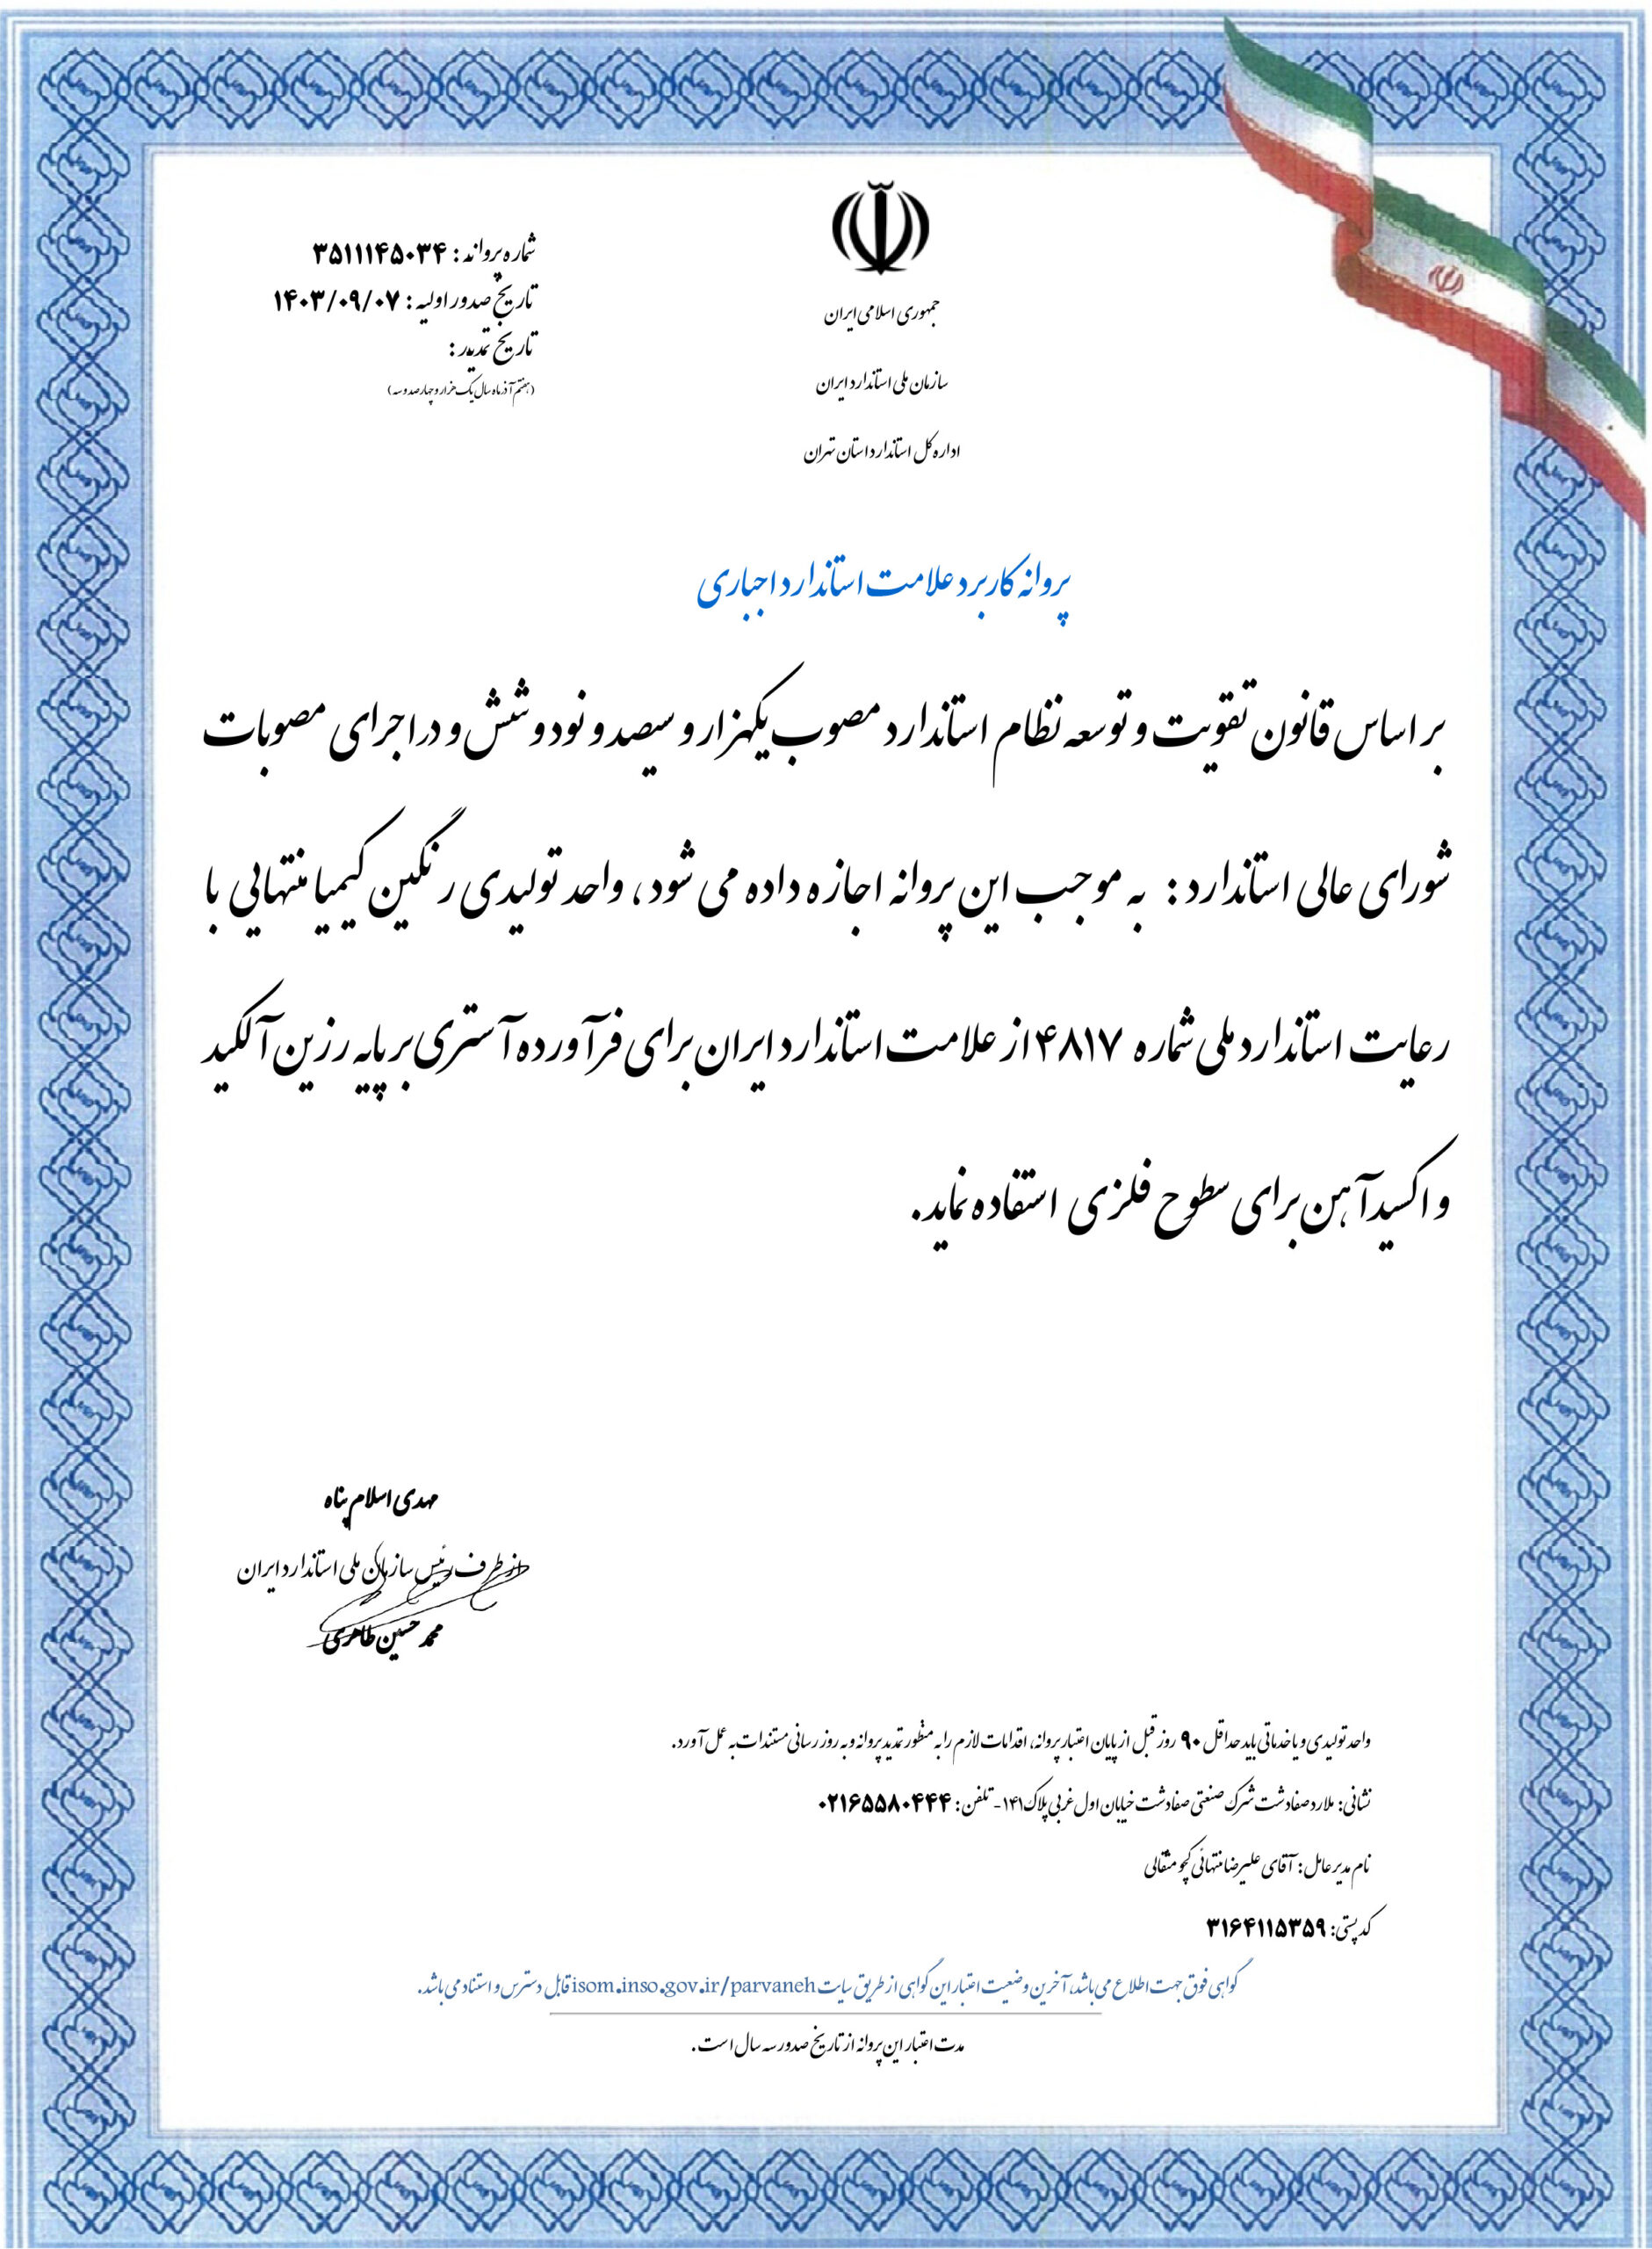 جمهوری اسلامی ایران
سازمان ملی استاندارد ایران
اداره کل استاندارد استان تهران
شماره پروانه : ۳۵۱۱۱۴۵۰۳۴
تاریخ صدور اولیه : ۱۴۰۳/۰۹/۰۷
تاریخ تمدید :
(هفتم آذر ماه سال یک هزار و چهارصد و سه)
پروانه کاربرد علامت استاندارد اجباری
بر اساس قانون تقویت و توسعه نظام استاندارد مصوب یکهزار و سیصد و نود و شش و در اجرای مصوبات
شورای عالی استاندارد : به موجب این پروانه اجازه داده می شود، واحد تولیدی رنگین کیمیا منتهایی با
رعایت استاندارد ملی شماره ۴۸۱۷ از علامت استاندارد ایران برای فرآورده آستری بر پایه رزین آلکید
و اکسید آهن برای سطوح فلزی استفاده نماید.
مهدی اسلام پناه
از طرف رئیس سازمان ملی استاندارد ایران
محمد حسین طاهری
واحد تولیدی و یا خدماتی باید حداقل ۹۰ روز قبل از پایان اعتبار پروانه، اقدامات لازم را به منظور تمدید پروانه و به روز رسانی مستندات به عمل آورد.
نشانی: ملارد صفادشت شهرک صنعتی صفادشت خیابان اول غربی پلاک ۱۴۱- تلفن : ۰۲۱۶۵۵۸۰۴۴۴
نام مدیر عامل : آقای علیرضا منتهائی کچو مثقالی
کد پستی: ۳۱۶۴۱۱۵۳۵۹
گواهی فوق جهت اطلاع می باشد، آخرین وضعیت اعتبار این گواهی از طریق سایت isom.inso.gov.ir/parvaneh قابل دسترس و استناد می باشد.
مدت اعتبار این پروانه از تاریخ صدور سه سال است.